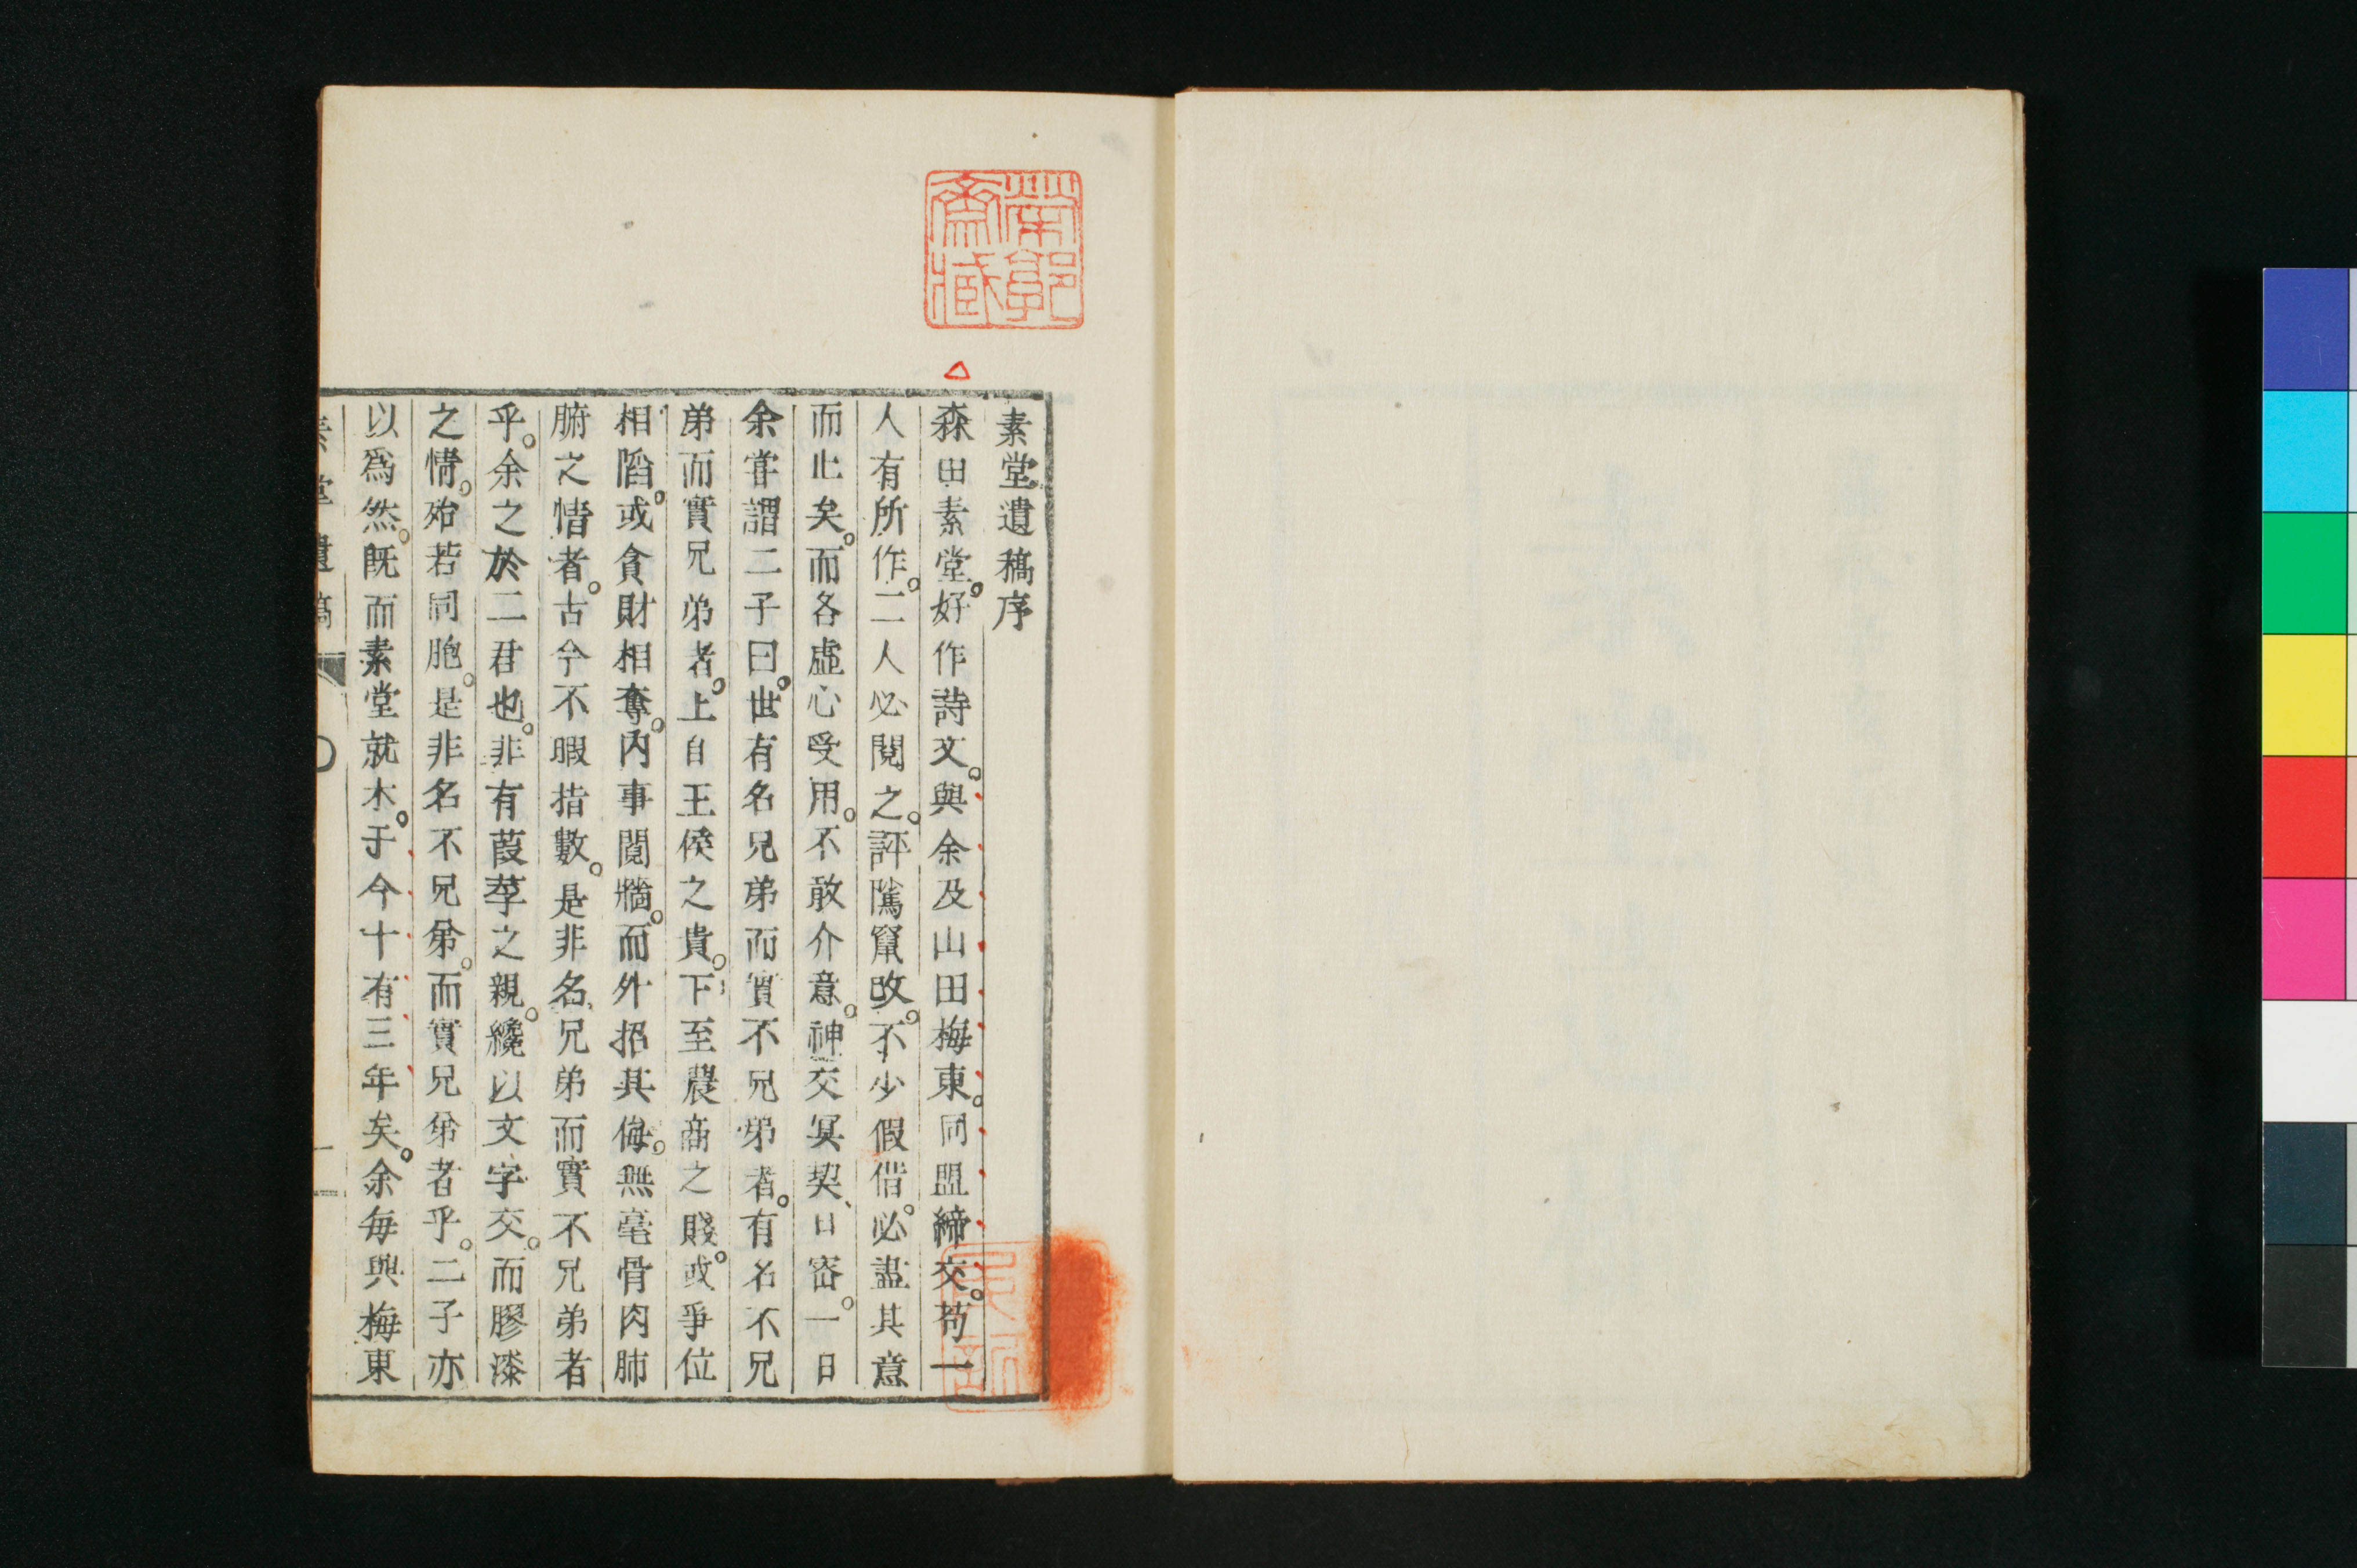 素堂遺稿序
森田素堂。好作詩文。與余及山田梅東。同盟締交。苟一
人有所作。二人必閱之。評隲竄改。不少假借。必盡其意
而止矣。而各虛心受用。不敢介意。神交冥契、日密。一日
余嘗謂二子曰。世有名兄弟而實不兄弟者。有名不兄
弟而實兄弟者。上自王侯之貴。下至農商之賤。或爭位
相䧟。或貪財相奪。內事鬩牆。而外招其侮。無毫骨肉肺
腑之情者。古今不暇指數。是非名兄弟而實不兄弟者
乎。余之於二君也。非有葭莩之親。纔以文字交。而膠漆
之情。殆若同胞。是非名不兄弟。而實兄弟者乎。二子亦
以爲然。旣而素堂就木。于今十有三年矣。余每與梅東
素堂遺稿